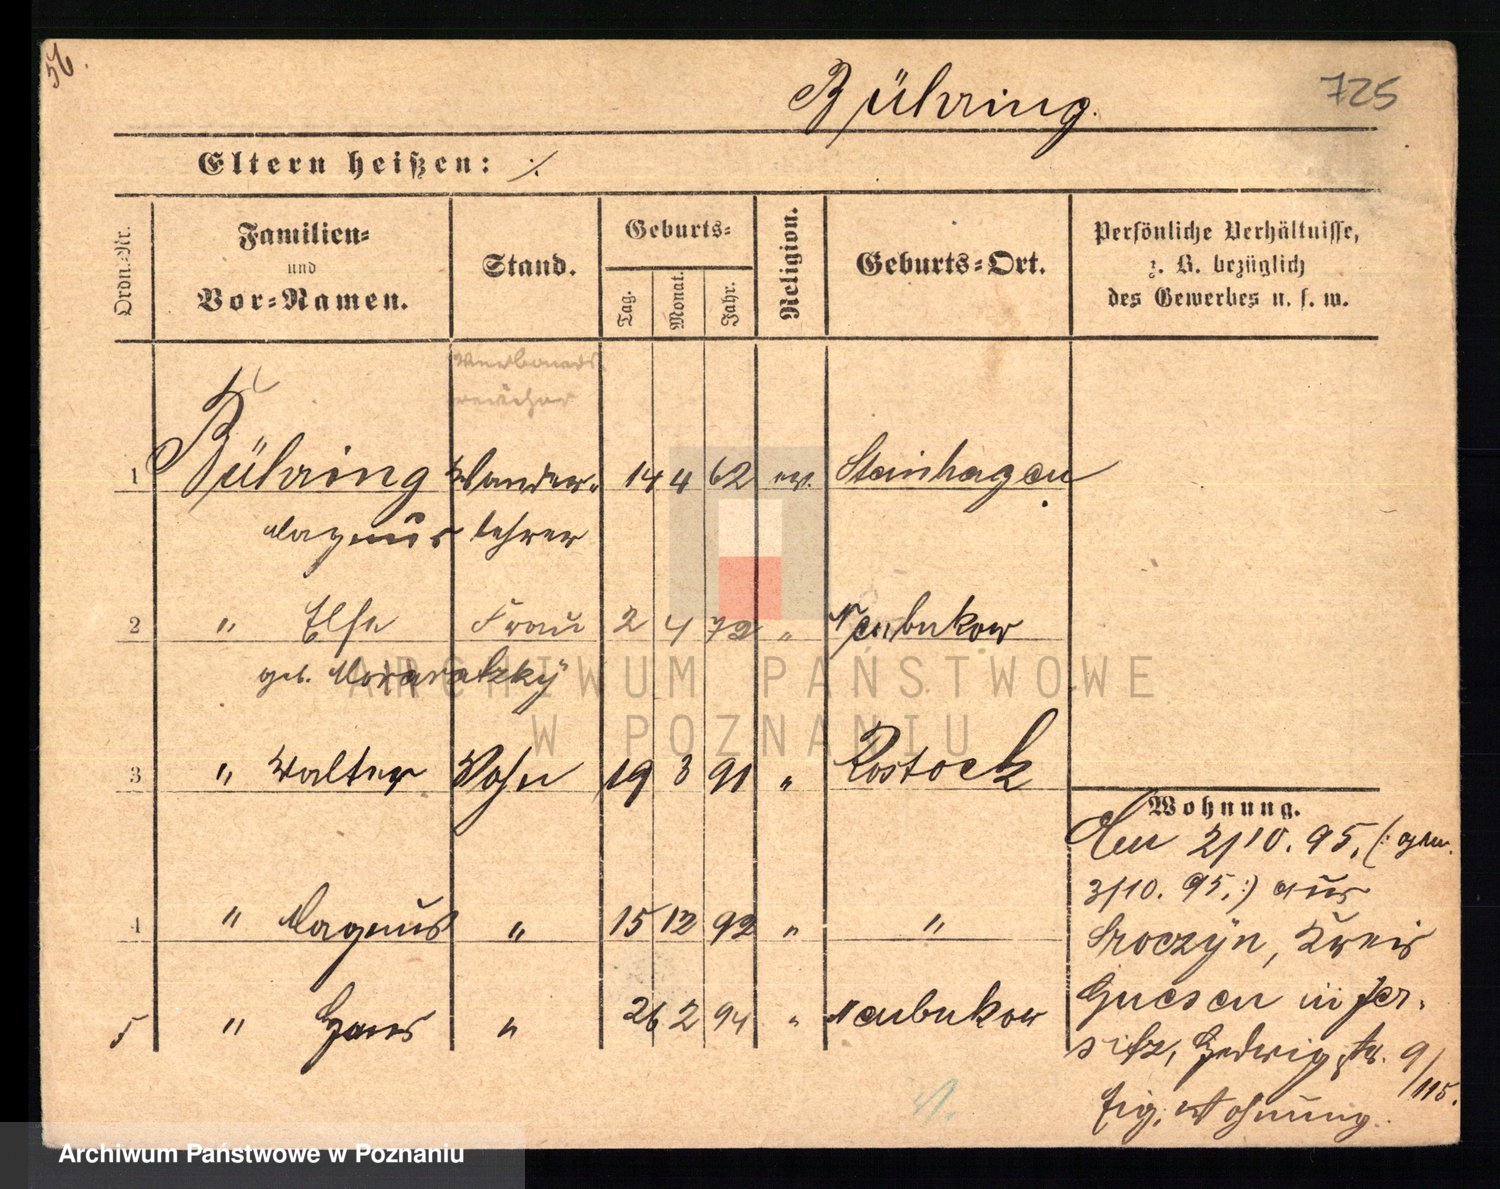 Bühring.
725
Eltern heißen: ./.
Ordn.-Nr.
Familien-
und
Vor-Namen.
Stand.
Geburts-
Tag.
Monat.
Jahr.
Religion.
Geburts-Ort.
Persönliche Verhältnisse,
z. B. bezüglich
des Gewerbes u. s. w.
Verbands
1 Bühring Wander- 14 4 62 ev. Steinhagen
Magnus lehrer
2 " Else Frau 2 4 72 " Neubukow
geb.
3 " Walter Sohn 19 3 91 " Rostock
4 " Magnus " 15 12 92 " "
5 " Hans " 26 2 94 " Neubukow
Wohnung.
Den 2/10. 95. (: gem.
3/10. 95. :) aus
Sroczyn, Kreis
Gnesen in Jer-
sitz, Hedwigstr. 9/115.
Eig. Wohnung.
ARCHIWUM PAŃSTWOWE
W POZNANIU
Archiwum Państwowe w Poznaniu